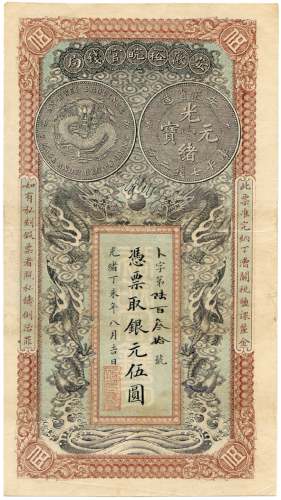 安徽裕皖官錢局
光緒元寶
此票准完納丁漕關稅鹽課釐金
卜字第陸百叁拾號
憑票取銀元伍圓
光緒丁未年八月吉日
如有私刻假票者照私鑄例治罪